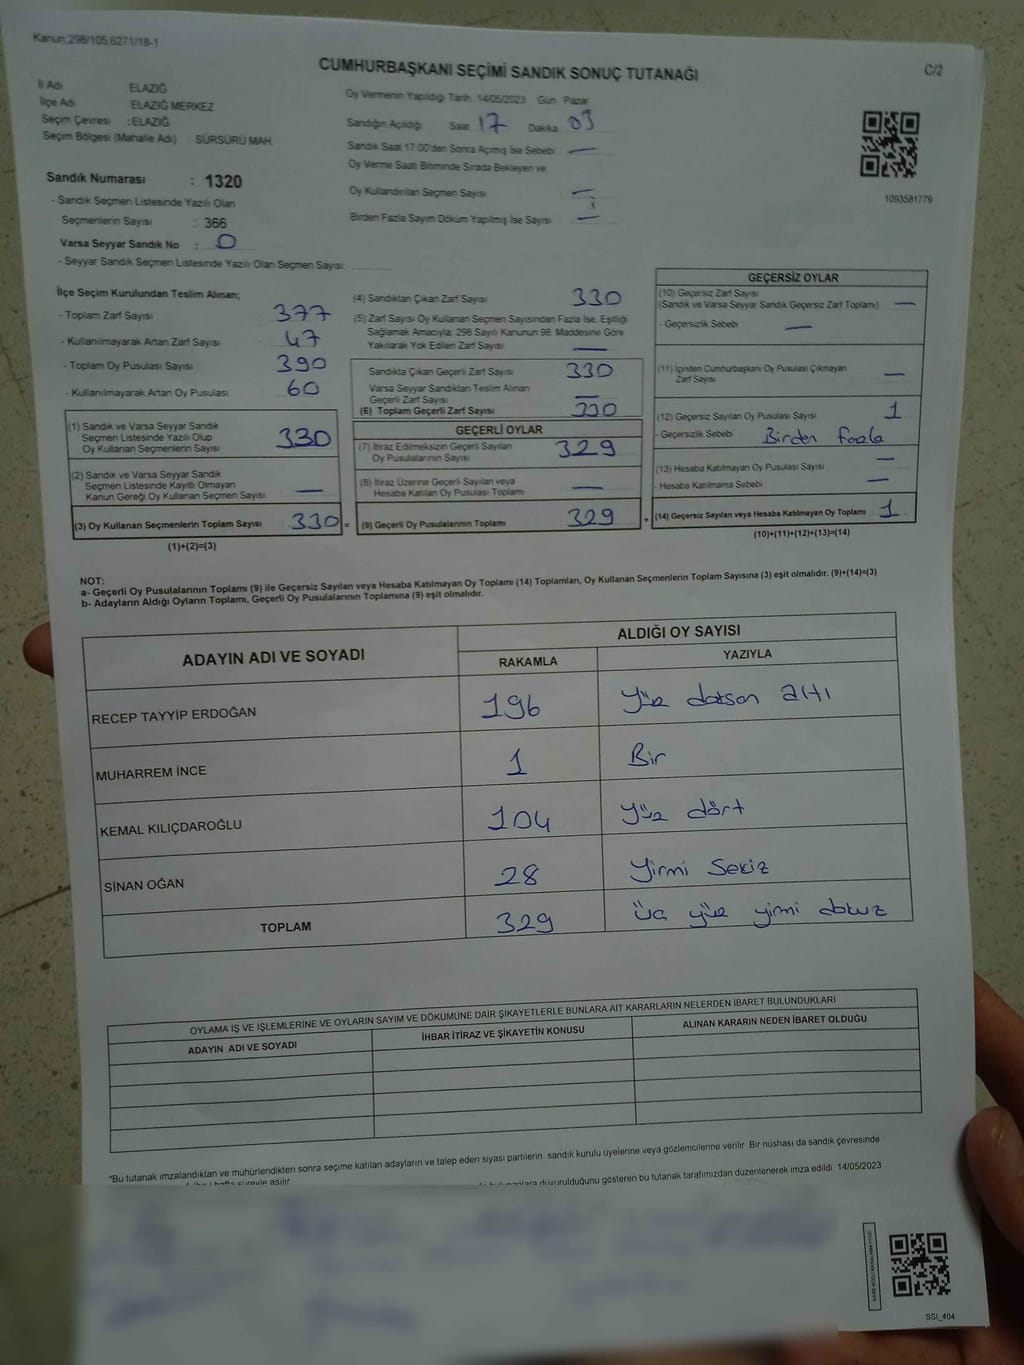 Kanun,298/105,6271/18-1
C/2
CUMHURBAŞKANI SEÇİMİ SANDIK SONUÇ TUTANAĞI
İl Adı ELAZIĞ
İlçe Adı ELAZIĞ MERKEZ
Seçim Çevresi : ELAZIĞ
Seçim Bölgesi (Mahalle Adı) SÜRSÜRÜ MAH.
Sandık Numarası : 1320
- Sandık Seçmen Listesinde Yazılı Olan
Seçmenlerin Sayısı : 366
Varsa Seyyar Sandık No : 0
- Seyyar Sandık Seçmen Listesinde Yazılı Olan Seçmen Sayısı:
Oy Vermenin Yapıldığı Tarih: 14/05/2023 Gün: Pazar
Sandığın Açıldığı Saat 17 Dakika 03
Sandık Saat 17:00'den Sonra Açmış İse Sebebi —
Oy Verme Saati Bitiminde Sırada Bekleyen ve
Oy Kullandırılan Seçmen Sayısı —
Birden Fazla Sayım Döküm Yapılmış İse Sayısı —
1093581779
İlçe Seçim Kurulundan Teslim Alınan;
- Toplam Zarf Sayısı 377
- Kullanılmayarak Artan Zarf Sayısı 47
- Toplam Oy Pusulası Sayısı 390
- Kullanılmayarak Artan Oy Pusulası 60
(1) Sandık ve Varsa Seyyar Sandık
Seçmen Listesinde Yazılı Olup
Oy Kullanan Seçmenlerin Sayısı 330
(2) Sandık ve Varsa Seyyar Sandık
Seçmen Listesinde Kayıtlı Olmayan
Kanun Gereği Oy Kullanan Seçmen Sayısı —
(3) Oy Kullanan Seçmenlerin Toplam Sayısı 330 =
(1)+(2)=(3)
(4) Sandıktan Çıkan Zarf Sayısı 330
(5) Zarf Sayısı Oy Kullanan Seçmen Sayısından Fazla İse, Eşitliği
Sağlamak Amacıyla, 298 Sayılı Kanunun 98. Maddesine Göre
Yakılarak Yok Edilen Zarf Sayısı —
Sandıkta Çıkan Geçerli Zarf Sayısı 330
Varsa Seyyar Sandıktan Teslim Alınan
Geçerli Zarf Sayısı —
(6) Toplam Geçerli Zarf Sayısı 330
GEÇERLİ OYLAR
(7) İtiraz Edilmeksizin Geçerli Sayılan
Oy Pusulalarının Sayısı 329
(8) İtiraz Üzerine Geçerli Sayılan veya
Hesaba Katılan Oy Pusulası Toplamı —
(9) Geçerli Oy Pusulalarının Toplamı 329 +
GEÇERSİZ OYLAR
(10) Geçersiz Zarf Sayısı
(Sandık ve Varsa Seyyar Sandık Geçersiz Zarf Toplamı) —
- Geçersizlik Sebebi —
(11) İçinden Cumhurbaşkanı Oy Pusulası Çıkmayan
Zarf Sayısı —
(12) Geçersiz Sayılan Oy Pusulası Sayısı 1
- Geçersizlik Sebebi Birden fazla
(13) Hesaba Katılmayan Oy Pusulası Sayısı —
- Hesaba Katılmama Sebebi —
(14) Geçersiz Sayılan veya Hesaba Katılmayan Oy Toplamı 1
(10)+(11)+(12)+(13)=(14)
NOT:
a- Geçerli Oy Pusulalarının Toplamı (9) ile Geçersiz Sayılan veya Hesaba Katılmayan Oy Toplamı (14) Toplamları, Oy Kullanan Seçmenlerin Toplam Sayısına (3) eşit olmalıdır. (9)+(14)=(3)
b- Adayların Aldığı Oyların Toplamı, Geçerli Oy Pusulalarının Toplamına (9) eşit olmalıdır.
ADAYIN ADI VE SOYADI
ALDIĞI OY SAYISI
RAKAMLA YAZIYLA
RECEP TAYYİP ERDOĞAN 196 Yüz doksan altı
MUHARREM İNCE 1 Bir
KEMAL KILIÇDAROĞLU 104 Yüz dört
SİNAN OĞAN 28 Yirmi Sekiz
TOPLAM 329 üç yüz yirmi dokuz
OYLAMA İŞ VE İŞLEMLERİNE VE OYLARIN SAYIM VE DÖKÜMÜNE DAİR ŞİKAYETLERLE BUNLARA AİT KARARLARIN NELERDEN İBARET BULUNDUKLARI
ADAYIN ADI VE SOYADI İHBAR İTİRAZ VE ŞİKAYETİN KONUSU ALINAN KARARIN NEDEN İBARET OLDUĞU
*Bu tutanak imzalandıktan ve mühürlendikten sonra seçime katılan adayların ve talep eden siyasi partilerin sandık kurulu üyelerine veya gözlemcilerine verilir. Bir nüshası da sandık çevresinde
hafta süreyle asılır.
duyurulduğunu gösteren bu tutanak tarafımızdan düzenlenerek imza edildi. 14/05/2023
SSI_404